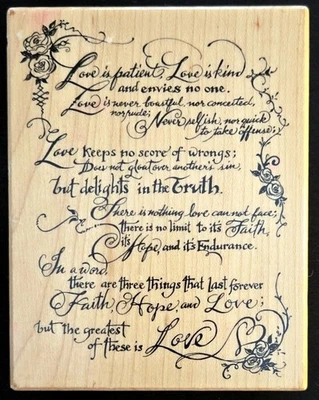 Love is patient; Love is kind
and envies no one.
Love is never boastful, nor conceited,
nor rude; Never selfish, nor quick
to take offense;
Love keeps no score of wrongs;
Does not gloat over another's sin,
but delights in the Truth.
There is nothing love cannot face;
there is no limit to its Faith,
its Hope, and its Endurance.
In a word,
there are three things that last forever
Faith, Hope, and Love;
but the greatest
of these is Love